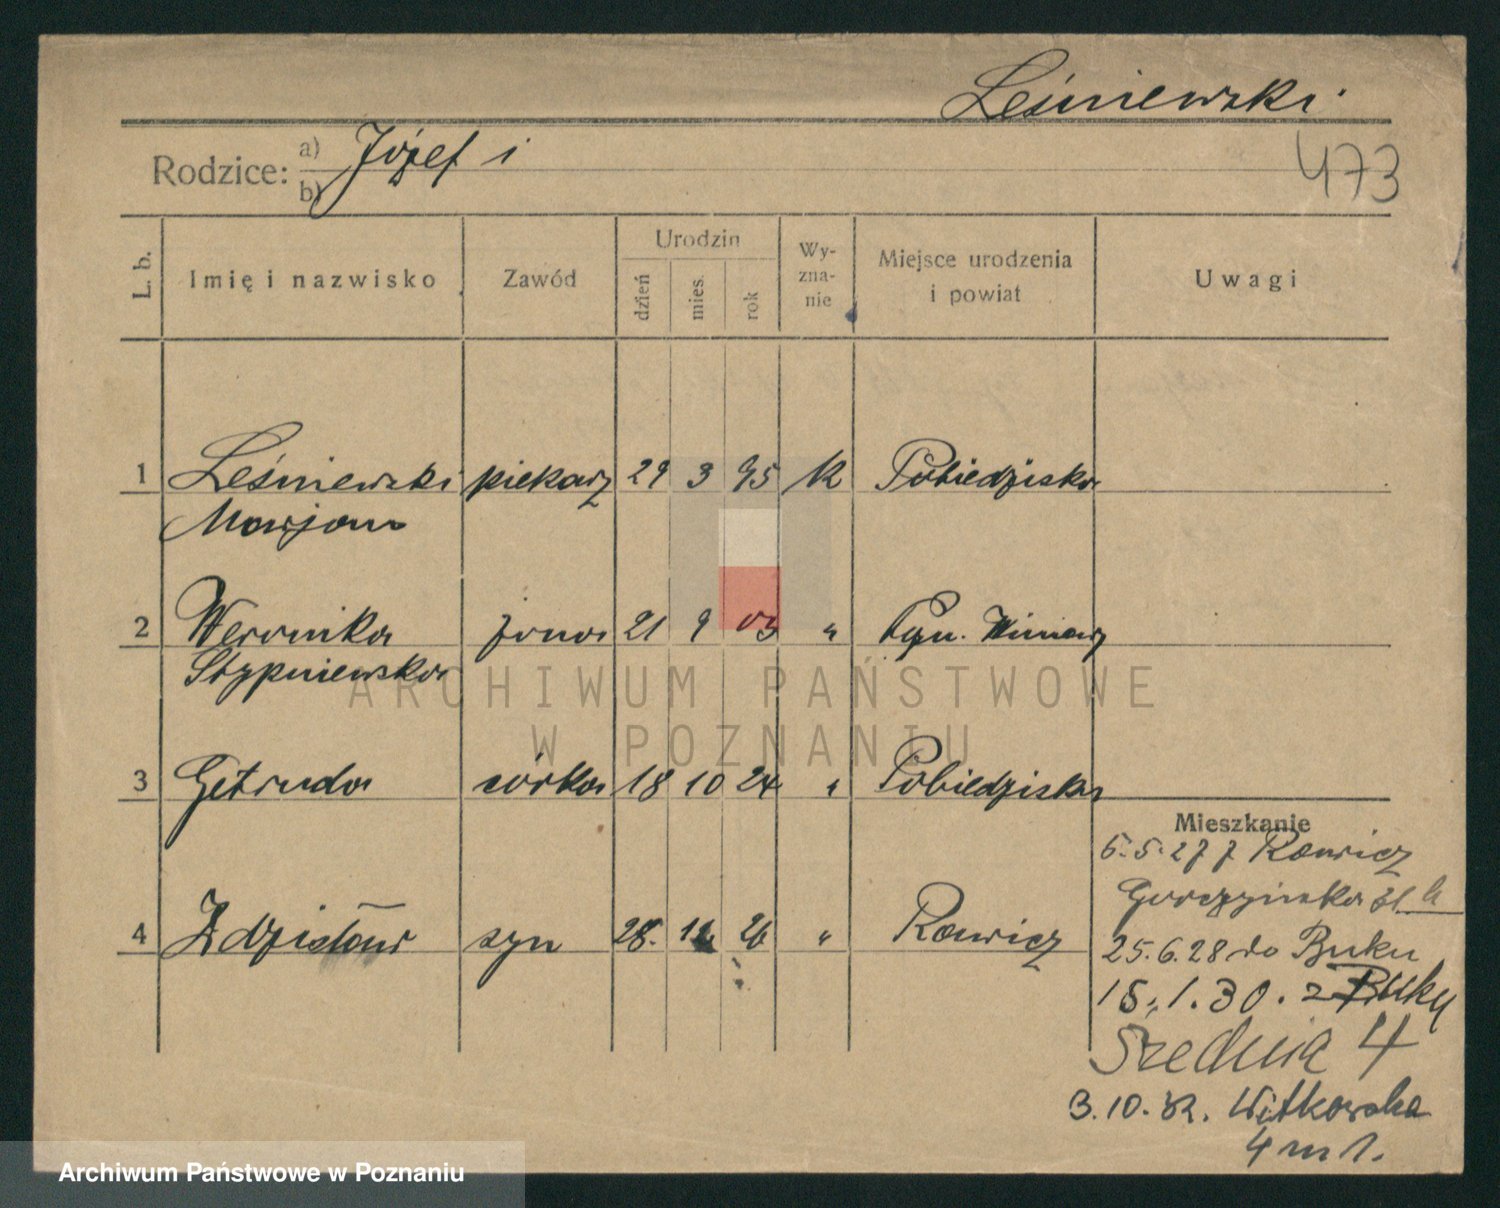 Leśniewski
Rodzice: a) Józef i
b)
473
L. b.
Imię i nazwisko
Zawód
Urodzin
dzień
mies.
rok
Wy-
zna-
nie
Miejsce urodzenia
i powiat
Uwagi
1 Leśniewski piekarz 29 3 95 k Pobiedziska
Marjan
2 Weronika żona 21 9 03 " Winiary
Stypniewska
3 Getruda córka 18 10 24 " Pobiedziska
4 Zdzisław syn 28. 12 26 " Rawicz
Mieszkanie
6.5.27 z Rawicz
31
25.6.28 do Buku
15.1.30. z Buku
Średnia 4
3.10.32. Witkowska
4 m 1.
ARCHIWUM PAŃSTWOWE
W POZNANIU
Archiwum Państwowe w Poznaniu